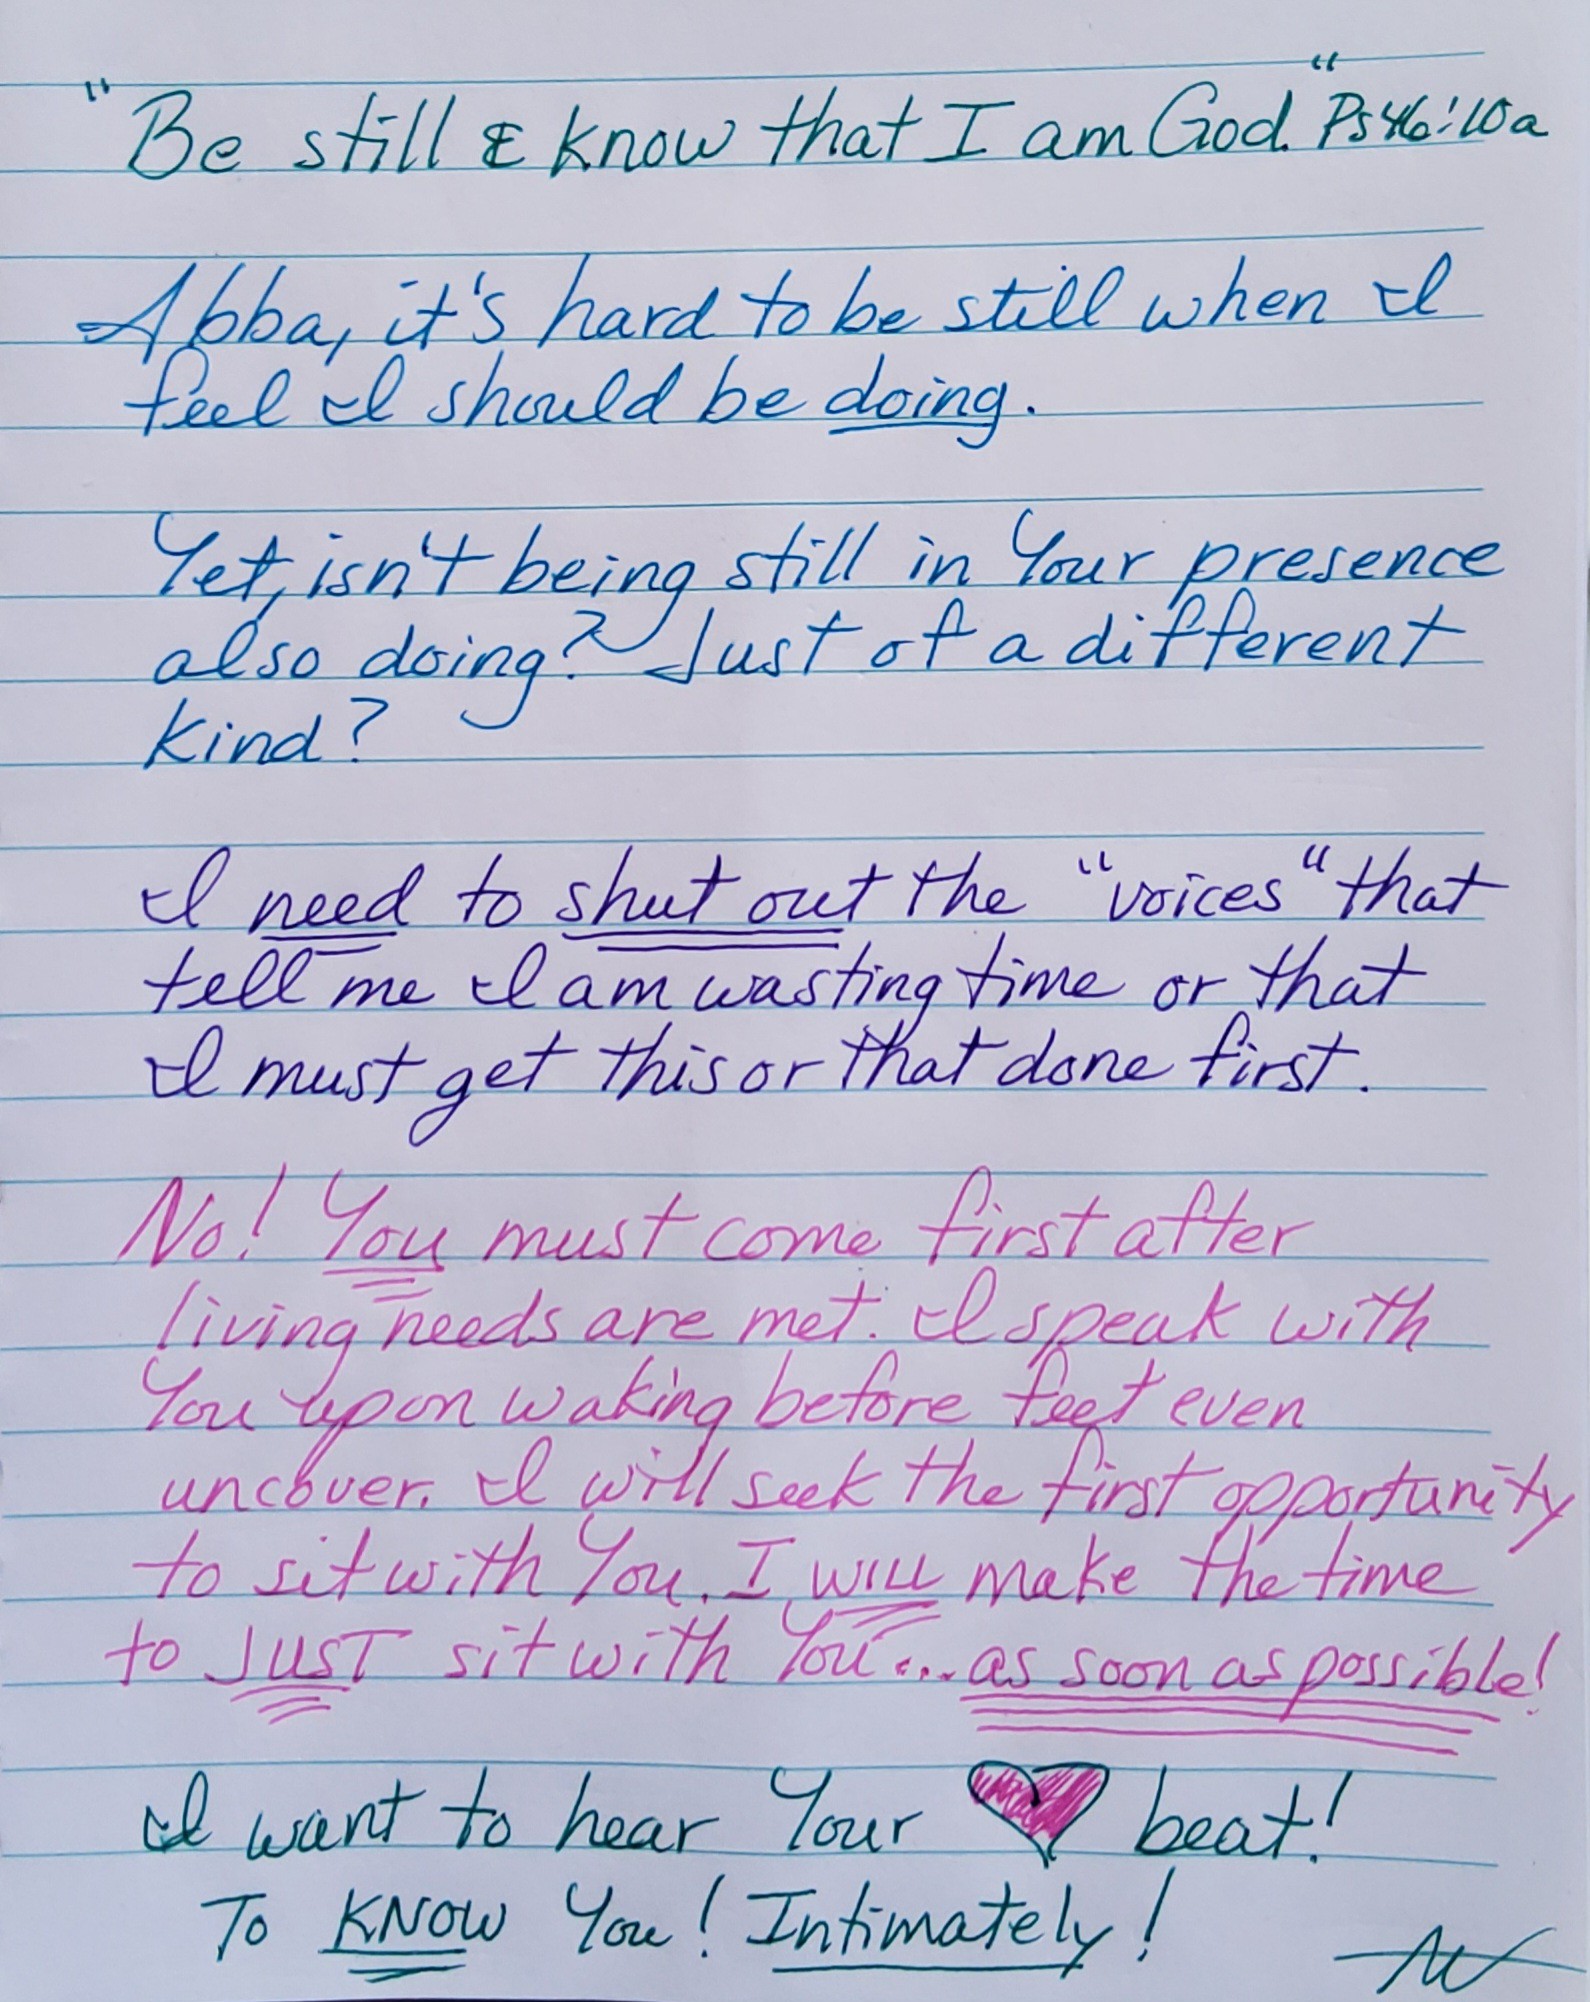 "Be still & know that I am God." Ps 46:10a
Abba, it's hard to be still when I
feel I should be doing.
Yet, isn't being still in Your presence
also doing? Just of a different
kind?
I need to shut out the "voices" that
tell me I am wasting time or that
I must get this or that done first.
No! You must come first after
living needs are met. I speak with
You upon waking before feet even
uncover. I will seek the first opportunity
to sit with You. I WILL make the time
to JUST sit with You... as soon as possible!
I want to hear Your ♥ beat!
To KNOW You! Intimately!